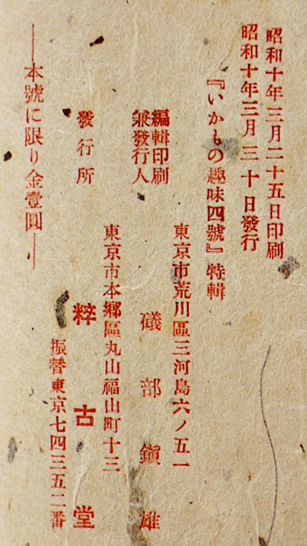 昭和十年三月二十五日印刷
昭和十年三月三十日發行
『いかもの趣味四號』特輯
東京市荒川區三河島六ノ五一
編輯印刷
兼發行人
礒部鎭雄
東京市本鄕區丸山福山町十三
發行所
粹古堂
振替東京七四三五二番
――本號に限り金壹圓――